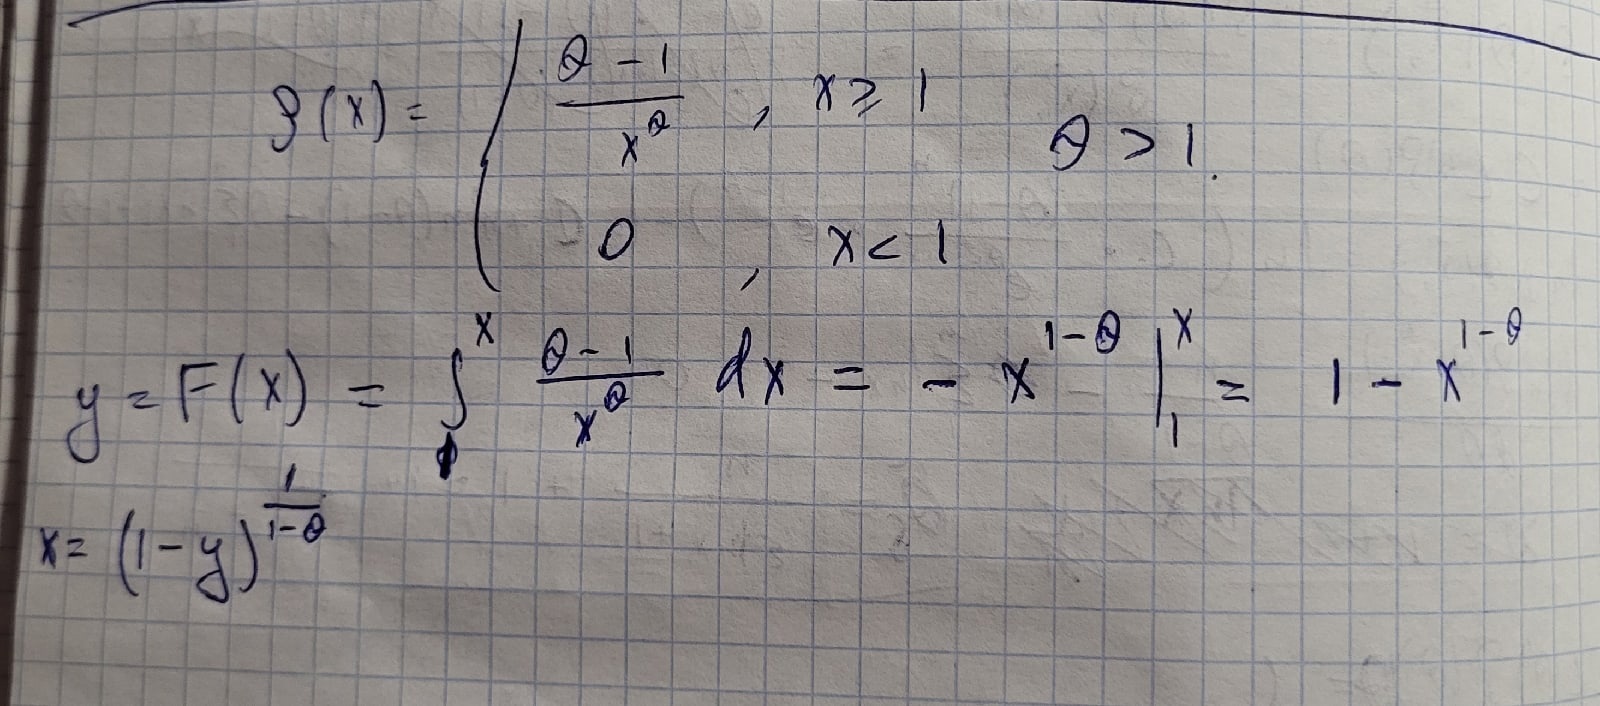 ρ(x) = { (θ - 1) / x^θ , x ⩾ 1
0 , x < 1
θ > 1.
y = F(x) = ∫_1^x (θ - 1) / x^θ dx = - x^(1-θ) |_1^x = 1 - x^(1-θ)
x = (1 - y)^(1/(1-θ))